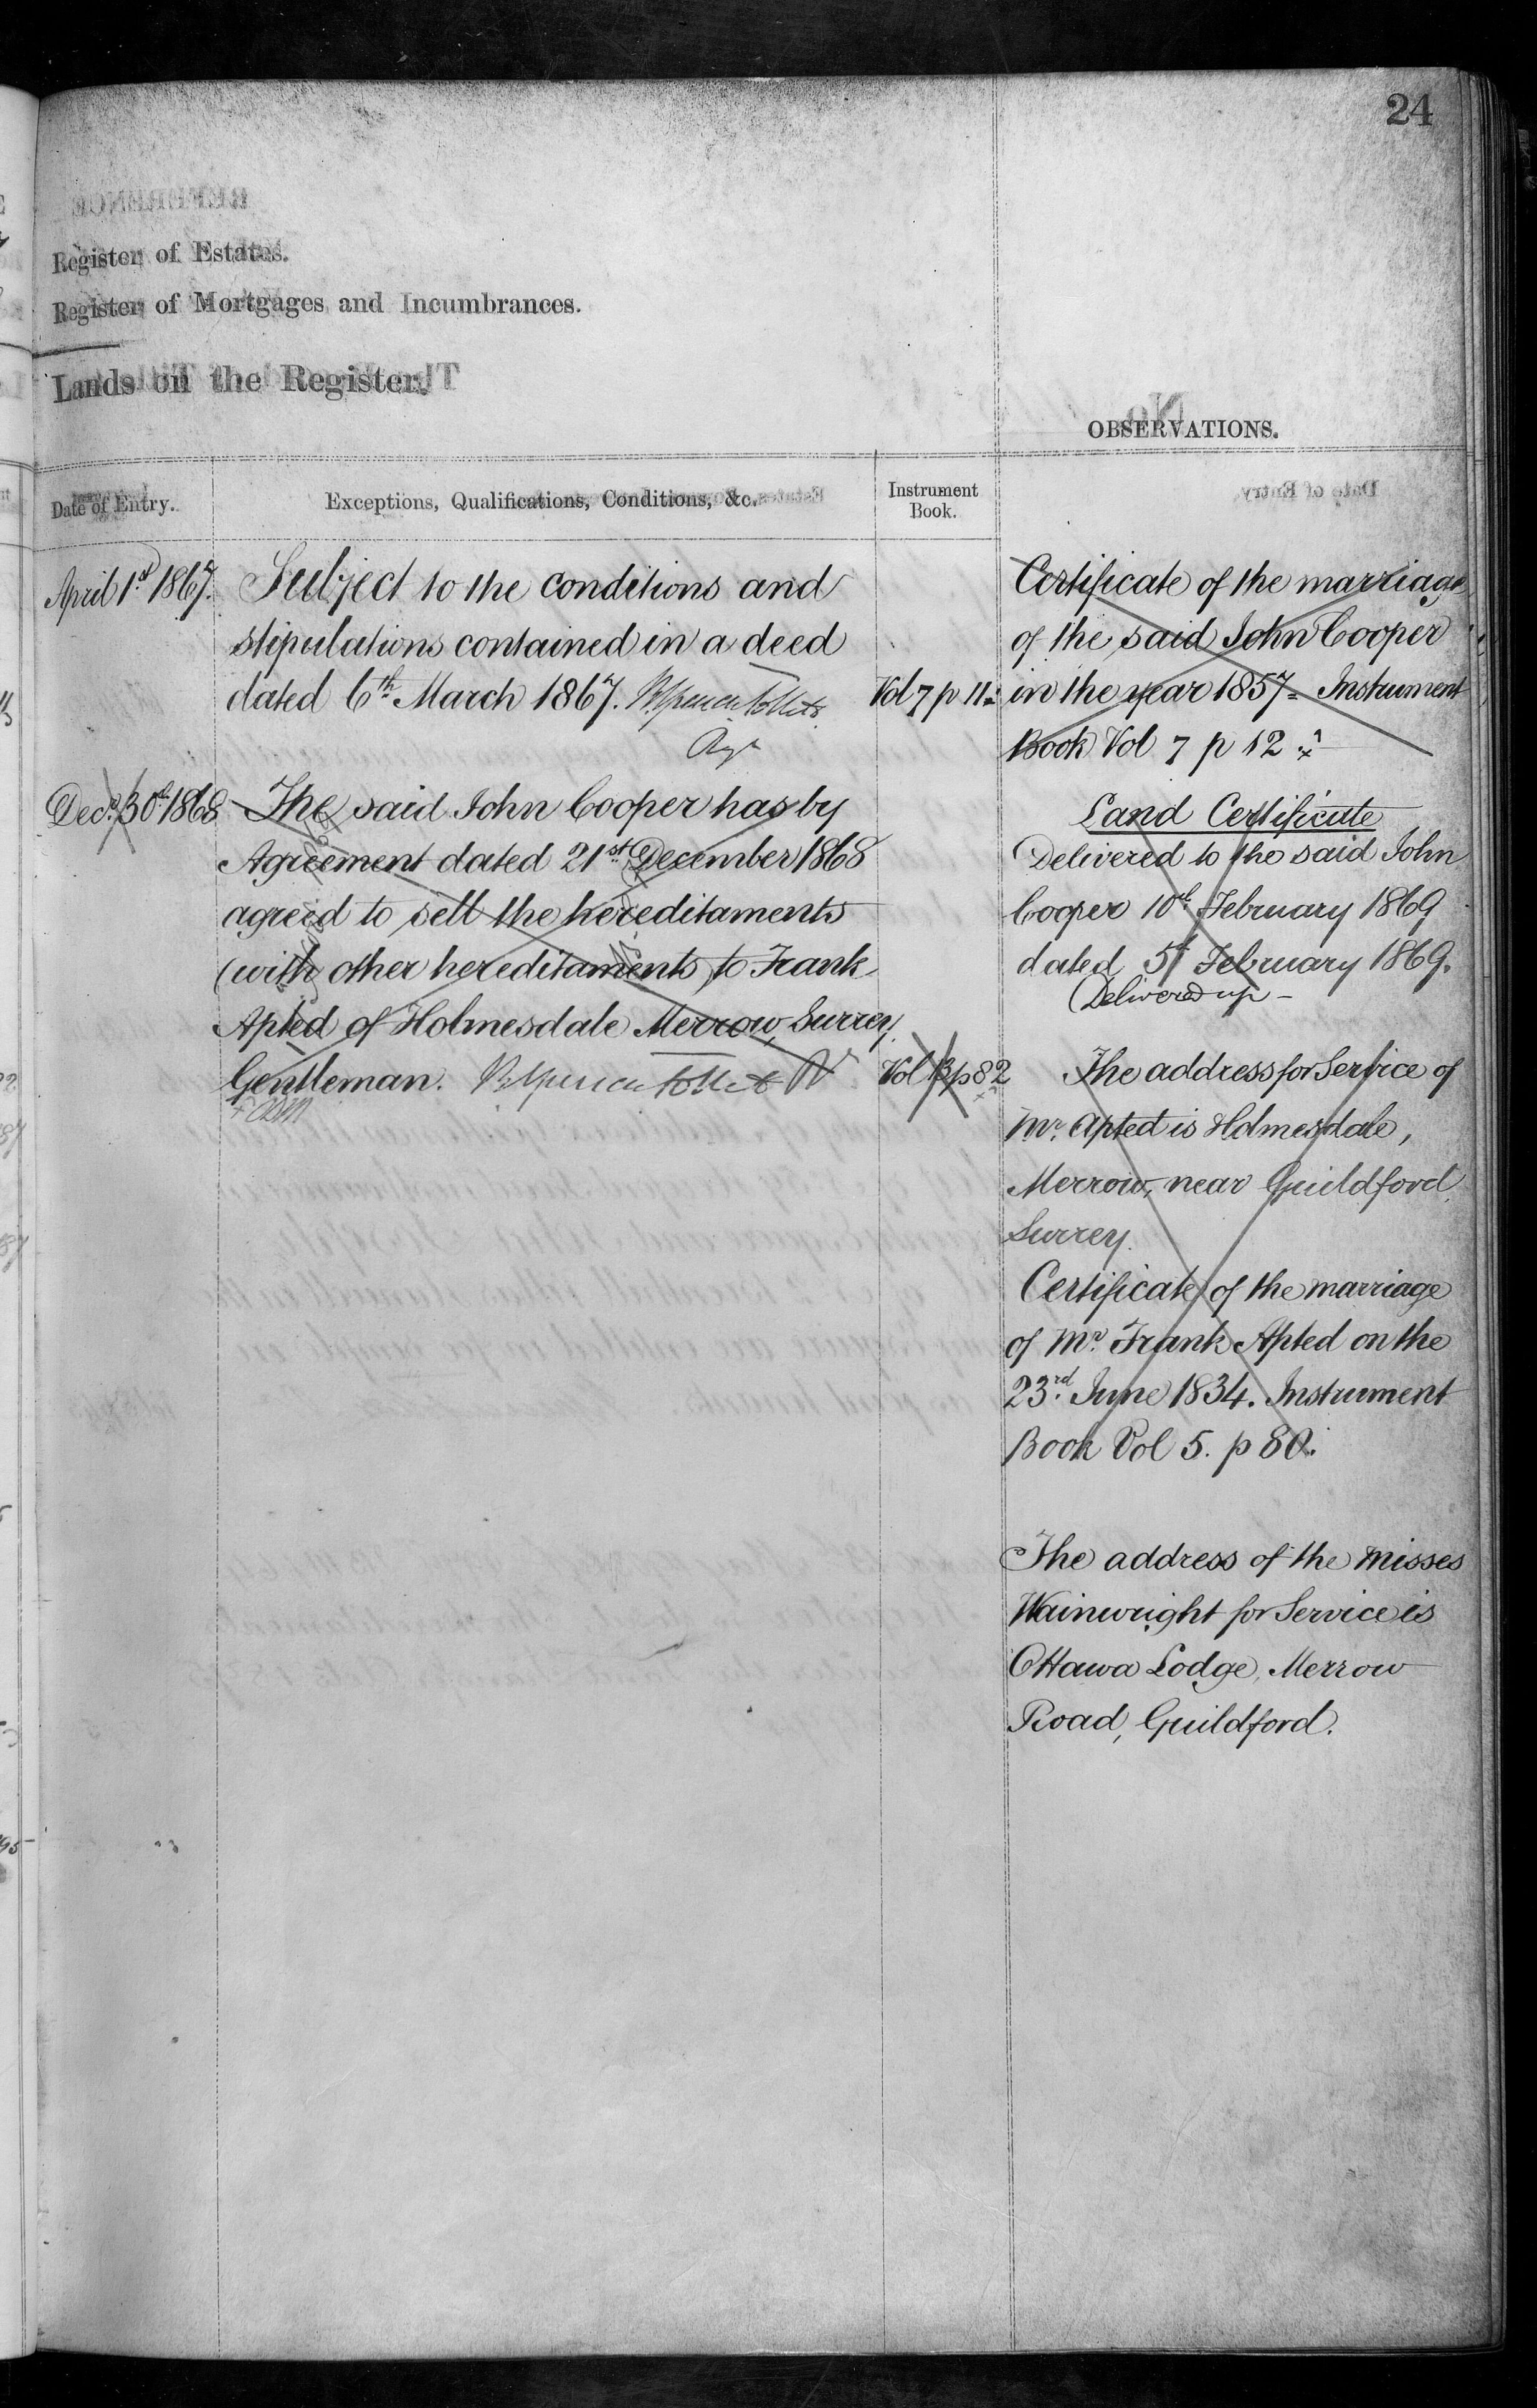 24
Register of Estates.
Register of Mortgages and Incumbrances.
Lands on the Register.
OBSERVATIONS.
Date of Entry.
Exceptions, Qualifications, Conditions, &c.
Instrument
Book.
April 1st 1867.
Subject to the conditions and
stipulations contained in a deed
dated 6th March 1867.
Vol 7 p 11
Decr. 30th 1868
The said John Cooper has by
Agreement dated 21st December 1868
agreed to sell the hereditaments
(with other hereditaments) to Frank
Apted of Holmesdale Merrow, Surrey,
Gentleman.
p 82
Certificate of the marriage
of the said John Cooper
in the year 1857 = Instrument
Book Vol 7 p 12
Land Certificate
Delivered to the said John
Cooper 10th February 1869
dated 5th February 1869.
Delivered up -
The address for Service of
Mr. Apted is Holmesdale,
Merrow, near Guildford,
Surrey.
Certificate of the marriage
of Mr. Frank Apted on the
23rd June 1834. Instrument
Book Vol 5. p 80.
The address of the Misses
Wainwright for Service is
Ottawa Lodge, Merrow
Road, Guildford.